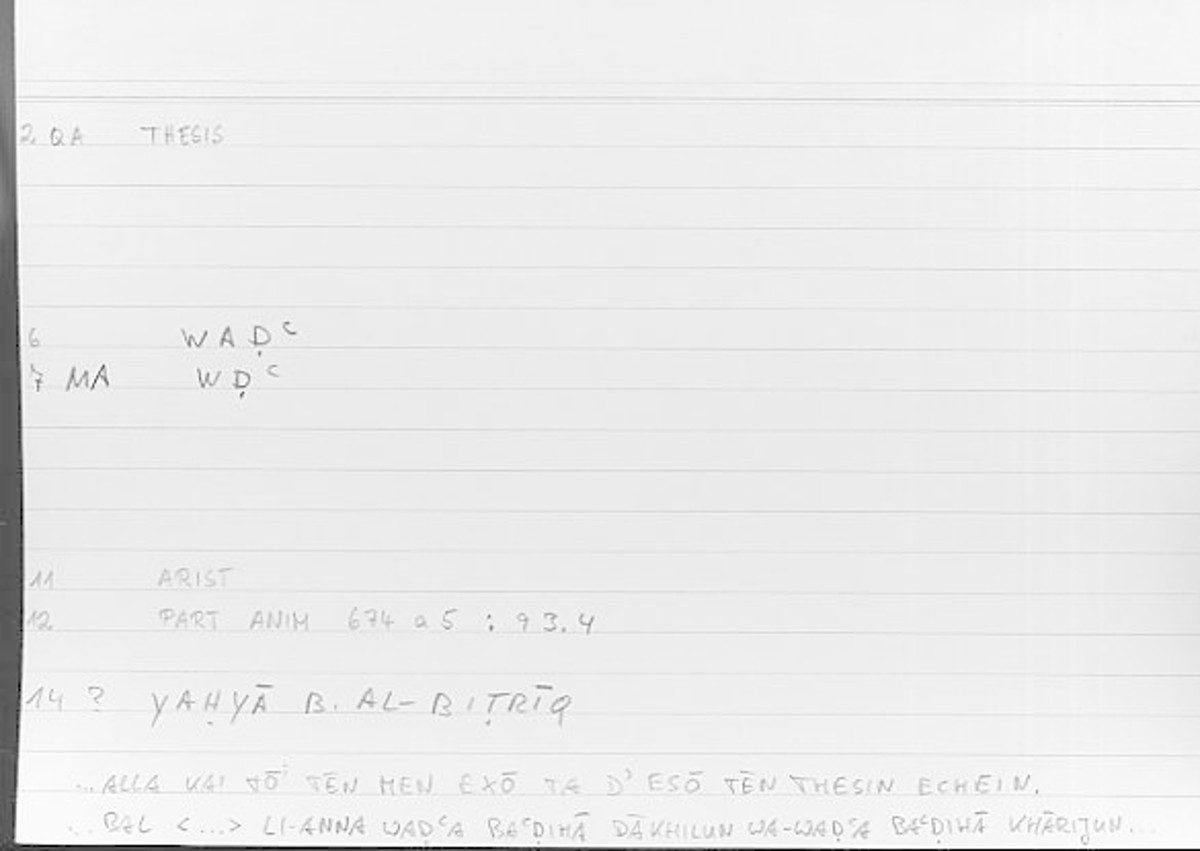 2 QA THESIS
6 WAḌʿ
7 MA WḌʿ
11 ARIST
12 PART ANIM 674 a 5 : 93.4
14 ? YAḤYĀ B. AL-BIṬRĪQ
...ALLA KAI TŌⁱ TĒN MEN EXŌ TA D' ESŌ TĒN THESIN ECHEIN.
...BAL <...> LI-ANNA WAḌʿA BAʿḌIHĀ DĀKHILUN WA-WAḌʿA BAʿḌIHĀ KHĀRIJUN...